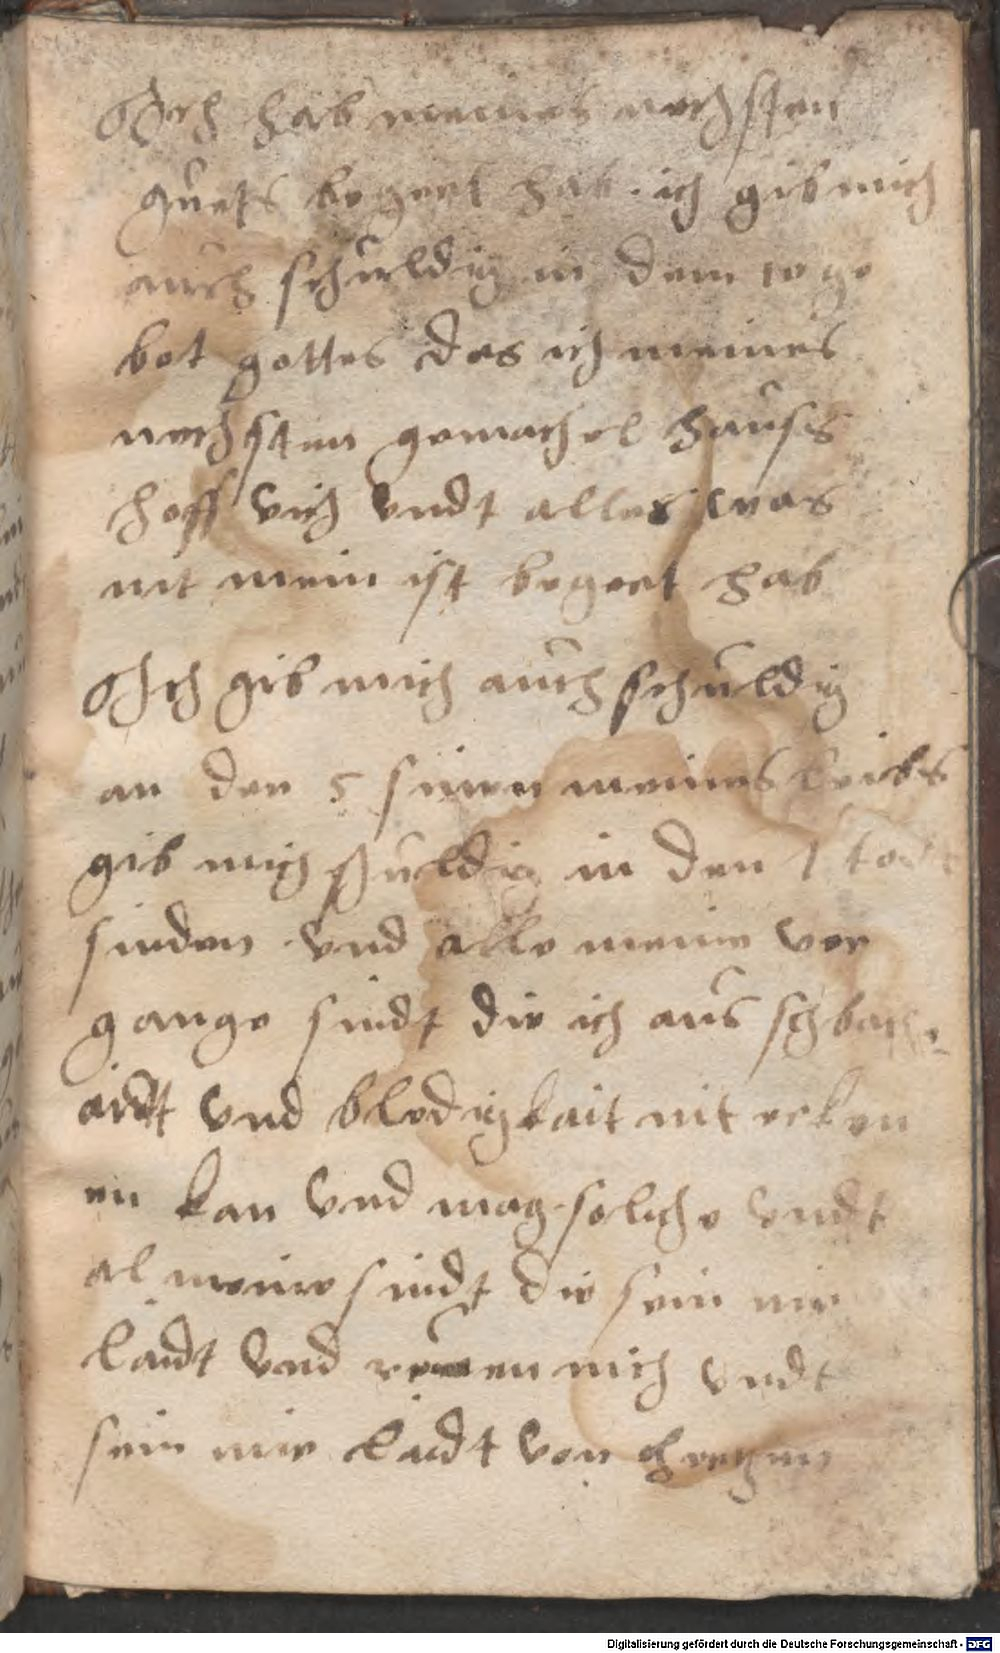 Ich hab meines nechsten
guets begert hab. ich gib mich
auch schuldig in dem 10 ge
bot gottes das ich meines
nechsten gemachel hauss
hoff vich vndt alles was
nit mein ist begert hab
Ich gib mich auch schuldig
an den 5 sinen meines leibs
gib mich schuldig in den 7 todt
sinden vnd alle meine ver
gange sindt die ich aus schbach
aidt vnd bledigkait nit erken
en kan vnd mag solche vndt
al meine sindt die sein mir
laidt vnd reuen mich vndt
sein mir laidt von herzen
Digitalisierung gefördert durch die Deutsche Forschungsgemeinschaft - DFG